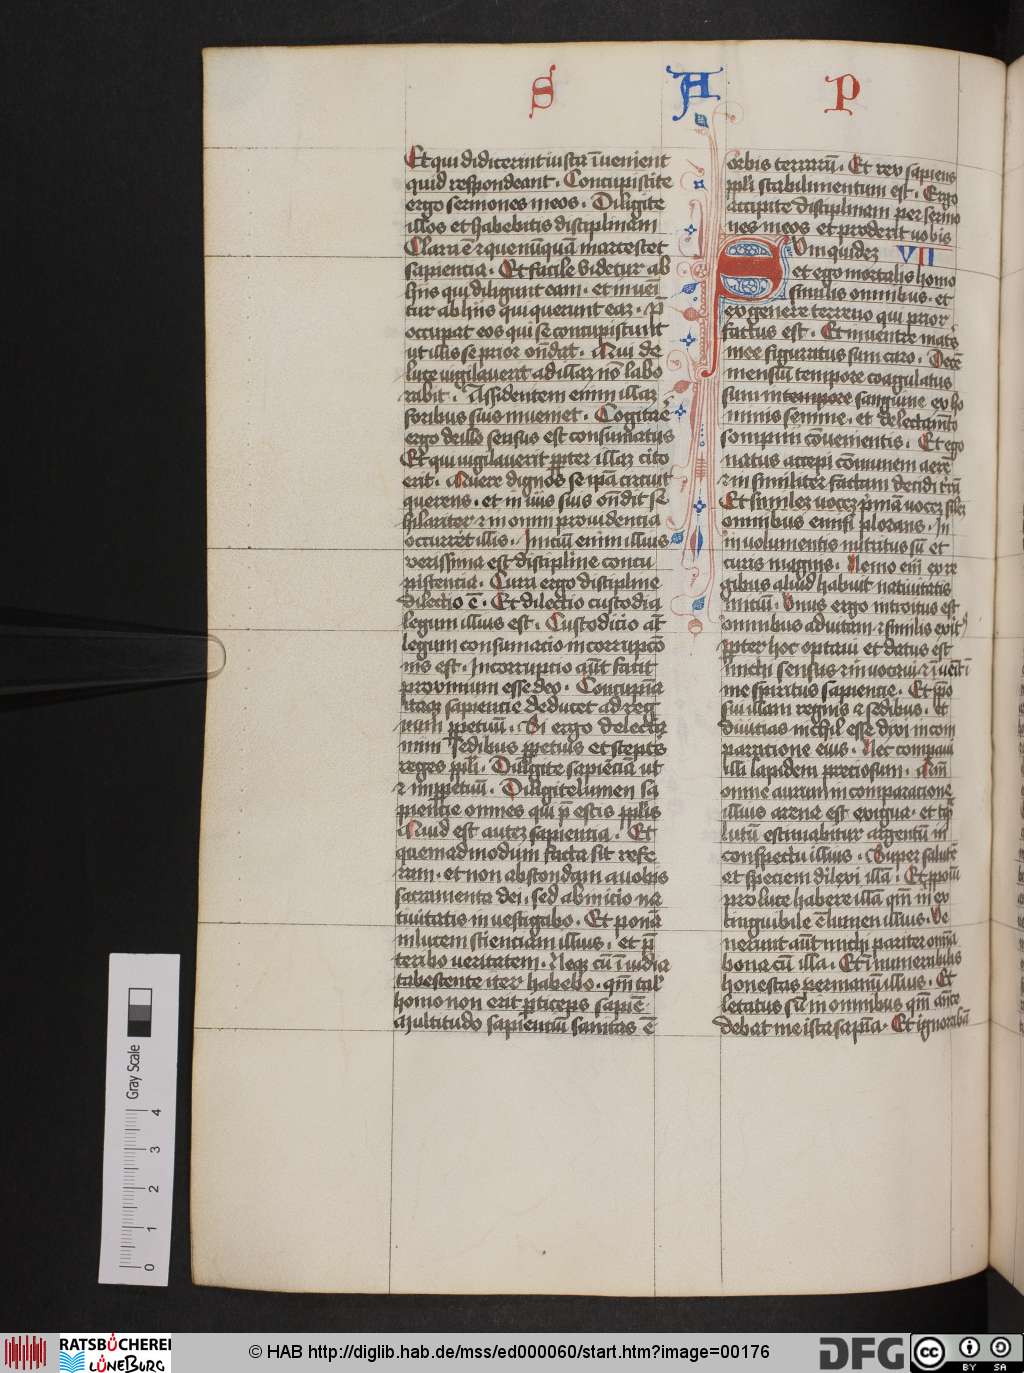 S A P
Et qui didicerint iusta īvenient
quid respondeant . Concupiscite
ergo sermones meos . Diligite
illos et habebitis disciplinam
Clara ē ⁊ que nūquā marcescet
sapiencia . Et facile videtur ab
hiis qui diligunt eam . et inueī
tur ab hiis qui querunt eaʒ . P̄
occupat eos qui se concupiscunt
ut illis se prior oñdat . Qui de
luce vigilauerit ad illaʒ nō labo
rabit . Assidentem enim illaʒ
foribus suis inueniet . Cogitare
ergo de illa sensus est consumatus
Et qui vigilauerit ꝓpter illaʒ cito
erit . Quere dignos se ipā circuit
querens . et in viis suis oñdit se
hilariter ⁊ in omni prouidencia
occurret illis . Iniciū enim illius
verissima est discipline concu
piscencia . Cura ergo discipline
dilectio ē . Et dilectio custodia
legum illius est . Custodicio aūt
legum consumacio incorrupcō
nis est . Incorruptio aūt facit
proximum esse deo . Concupīa
itaqꝫ sapiencie deducet ad reg
num ꝑpetuū . Si ergo delectam
mini sedibus ꝑpetuis et sceptris
reges ppl̄i . Diligite sapiēciā ut
⁊ inꝑpetuū . Diligite lumen sa
piencie omnes qui p̄ estis ppl̄is
Quid est auteʒ sapientia . Et
quemadmodum facta sit refe
ram . et non abscondam a uobis
sacramenta dei . sed ab inicio na
tiuitatis investigabo . Et ponā
in lucem scienciam illius . et p̄
teribo veritatem . Neqꝫ cū īvidia
tabescente iter habebo . qm̄ tal'
homo non erit ꝑticeps sapiē .
Multitudo sapienciū sanitas ē
orbis terrarū . Et rex sapiens
ppl̄i stabilimentum est . Ergo
accipite disciplinam per sermo
nes meos et proderit vobis
Sum quidez VII
et ego mortalis homo
similis omnibus . et
ex genere terreno qui prior
factus est . Et in uentre matrˢ
mee figuratus sum caro . Decē
mensiū tempore coagulatus
sum in tempore sanguine ex ho
minis semine . et delectamēto
sompnii cōuenientis . Et ego
natus accepi cōmunem aerē
⁊ in similiter factam decidi t̄rā
Et similez vocez p̄mā vocez siłez
omnibus emisi plorans . In
involumentis nutritus sū et
curis magnis . Nemo eī ex re
gibus aliud habuit natiuitatis
iniciū . Unus ergo introitus est
omnibus ad vitam ⁊ similis exit'
ꝓpter hoc optaui et datus est
michi sensus ⁊ invocavi ⁊ ī venit ī
me spiritus sapiencie . Et p̄po
sui illam regnis ⁊ sedibus . et
divitias nichil esse dixi in com
paracione eius . Nec comparaui
illi lapidem preciosum . Qm̄
omne aurum in comparatione
illius arena est exigua . et tꝗ
lutū estimabitur argentū in
conspectu illius . Super salutē
et speciem dilexi illā . Et ꝓposui
pro luce habere illā qm̄ in ex
tinguibile ē lumen illius . Ve
nerunt aūt michi pariter omīa
bona cū illa . Et īnumerabilis
honestas per manū illius . Et
letatus sū in omnibus qm̄ ante
debat me ista sapīa . Et ignorabā
Gray Scale
0 1 2 3 4
RATSBÜCHEREI
LÜNEBURG
© HAB http://diglib.hab.de/mss/ed000060/start.htm?image=00176
DFG
cc BY SA